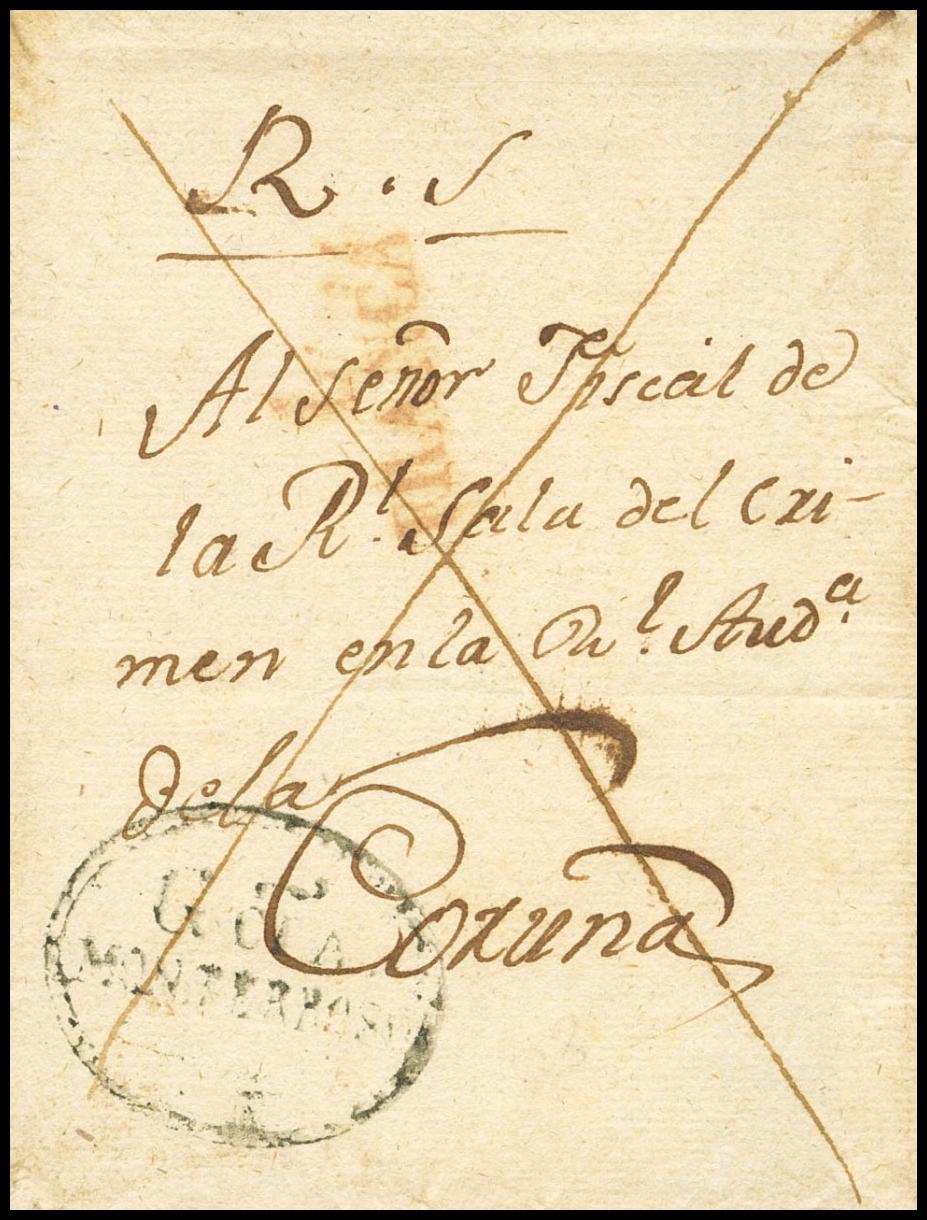 R. S
Al Señor Fiscal de
la R.l Sala del Cri-
men en la R.l Aud.a
de la
Coruña
MONTERROSO